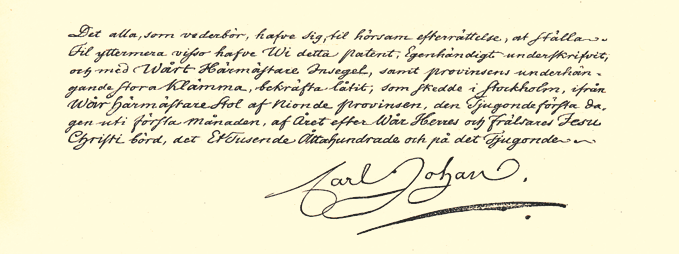 Det alla, som vederbör, hafve sig, til hörsam efterrättelse, at ställa
Til yttermera visso hafve Wi detta patent, Egenhändigt underskrifvit,
och med Wårt Härmästare Insegel, samt provinsens underhän-
gande stora Klämma, bekräfta låtit, som skedde i Stockholm, ifrån
Wår Härmästare Stol af Nionde Provinsen, den Tjugondeförsta da-
gen uti första månaden, af Året efter Wår Herres och Frälsares Jesu
Christi börd, det EtTusende Åttahundrade och på det Tjugonde
Carl Johan.